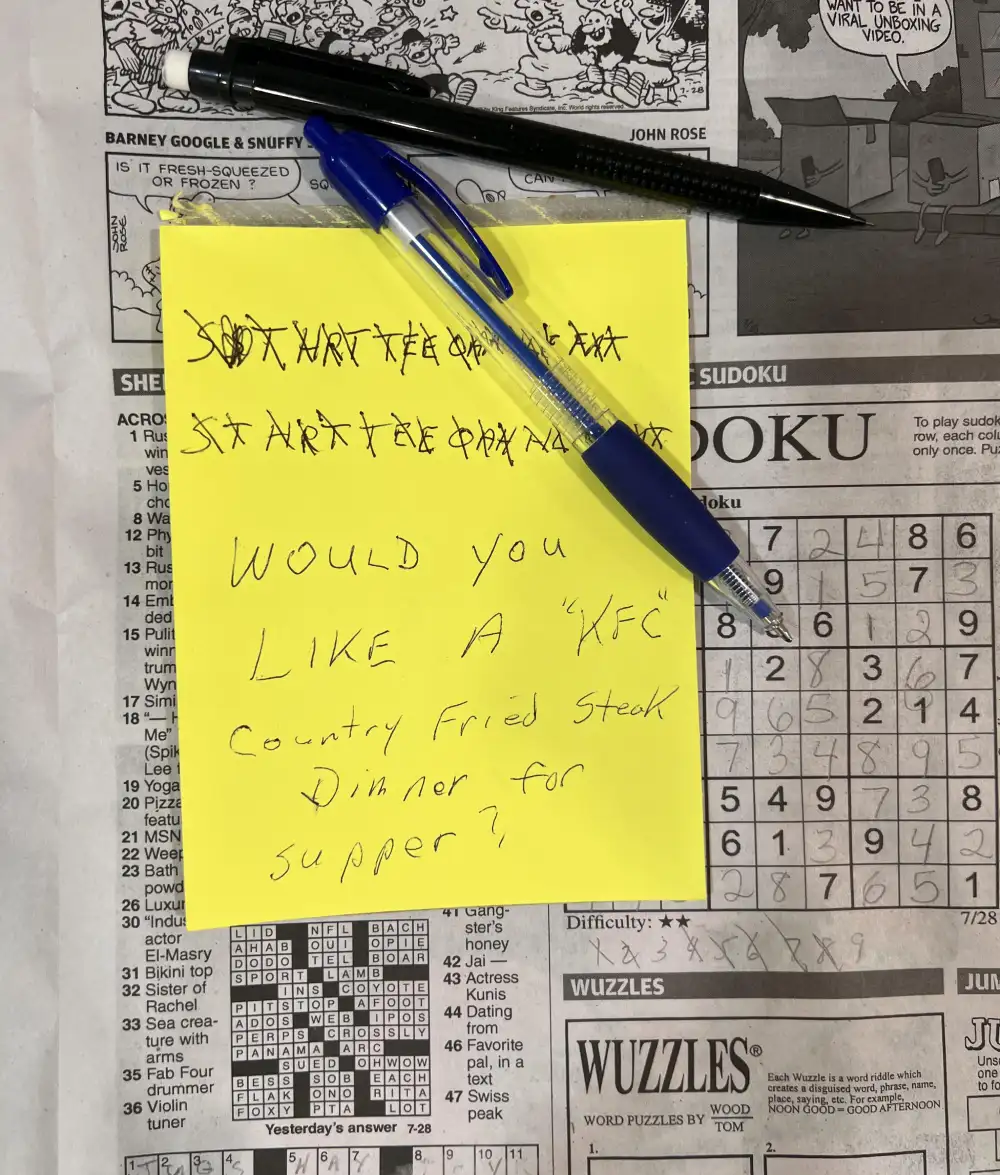 WANT TO BE IN A
VIRAL UNBOXING
VIDEO.
7-28
King Features Syndicate, Inc. World rights reserved.
BARNEY GOOGLE & SNUFFY
JOHN ROSE
IS IT FRESH-SQUEEZED
OR FROZEN ?
CAN
JOHN
ROSE
WOULD YOU
LIKE A "KFC"
Country Fried Steak
Dinner for
supper?
SHE
SUDOKU
DOKU
To play sudok
row, each col
only once. Pu
doku
7 2 4 8 6
9 1 5 7 3
8 6 1 2 9
1 2 8 3 6 7
9 6 5 2 1 4
7 3 4 8 9 5
5 4 9 7 3 8
6 1 3 9 4 2
2 8 7 6 5 1
Difficulty: ★★
7/28
1 2 3 4 5 6 7 8 9
ACROS
1 Rus
win
ves
5 Ho
cho
8 Wa
12 Phy
bit
13 Rus
mor
14 Emb
ded
15 Pulit
winn
trum
Wyn
17 Simi
18 "— H
Me"
(Spik
Lee f
19 Yoga
20 Pizza
featu
21 MSN
22 Weep
23 Bath
powd
26 Luxu
30 "Indus
actor
El-Masry
31 Bikini top
32 Sister of
Rachel
33 Sea crea-
ture with
arms
35 Fab Four
drummer
36 Violin
tuner
LID NFL BACH
AHAB OUI OPIE
DODO TEL BOAR
SPORT LAMB
INS COYOTE
PITSTOP AFOOT
ADOS WEB IPOS
PERPS CROSSLY
PANAMA ARC
SUED OHWOW
BESS SOB EACH
FLAK ONO RITA
FOXY PTA LOT
Yesterday's answer 7-28
1 2 3 4 5 6 7 8 9 10 11
41 Gang-
ster's
honey
42 Jai —
43 Actress
Kunis
44 Dating
from
46 Favorite
pal, in a
text
47 Swiss
peak
WUZZLES
JUM
WUZZLES®
WORD PUZZLES BY WOOD
TOM
Each Wuzzle is a word riddle which
creates a disguised word, phrase, name,
place, saying, etc. For example,
NOON GOOD = GOOD AFTERNOON
1.
2.
JU
Uns
one
to fo